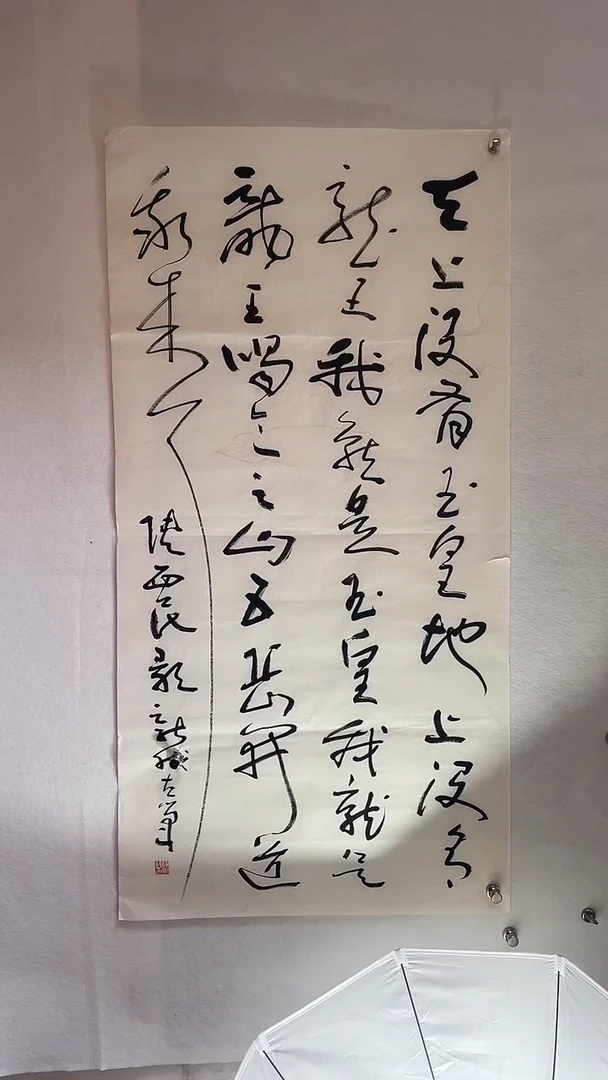 天上没有玉皇地上没有
龙王我就是玉皇我就是
龙王喝令三山五岳开道
我来了
陕西民歌 龙城左笔